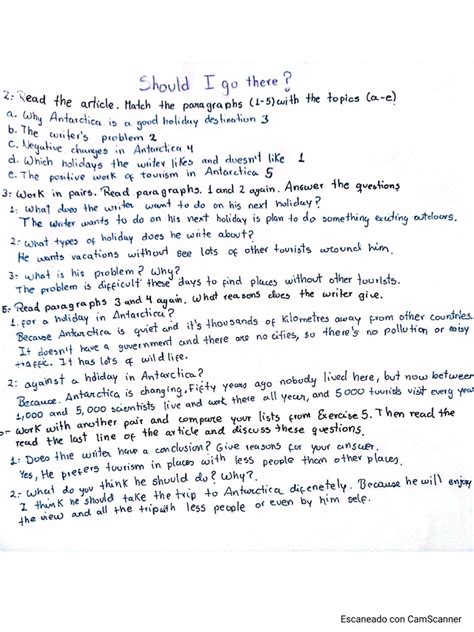 Should I go there?
2:- Read the article. Match the paragraphs (1-5) with the topics (a-e)
a. Why Antarctica is a good holiday destination 3
b. The writer's problem 2
c. Negative changes in Antarctica 4
d. Which holidays the writer likes and doesn't like 1
e. The positive work of tourism in Antarctica 5
3:- Work in pairs. Read paragraphs. 1 and 2 again. Answer the questions
1: What does the writer want to do on his next holiday?
The writer wants to do on his next holiday is plan to do something exciting outdoors.
2: What types of holiday does he write about?
He wants vacations without see lots of other tourists around him.
3: What is his problem? Why?
The problem is difficult these days to find places without other tourists.
5:- Read paragraphs 3 and 4 again. What reasons does the writer give.
1. for a holiday in Antarctica?
Because Antarctica is quiet and it's thousands of Kilometres away from other countries.
It doesn't have a government and there are no cities, so there's no pollution or noisy
traffic. It has lots of wildlife.
2: against a holiday in Antarctica?
Because. Antarctica is changing, Fifty years ago nobody lived here, but now between
1,000 and 5,000 scientists live and work there all year, and 5000 tourists visit every year
6:- Work with another pair and compare your lists from Exercise 5. Then read the
read the last line of the article and discuss these questions.
1: Does the writer have a conclusion? Give reasons for your answer.
Yes, He prefers tourism in places with less people than other places.
2:- What do you think he should do? Why?
I think he should take the trip to Antarctica Because he will enjoy
the view and all the with less people or even by him self.
Escaneado con CamScanner